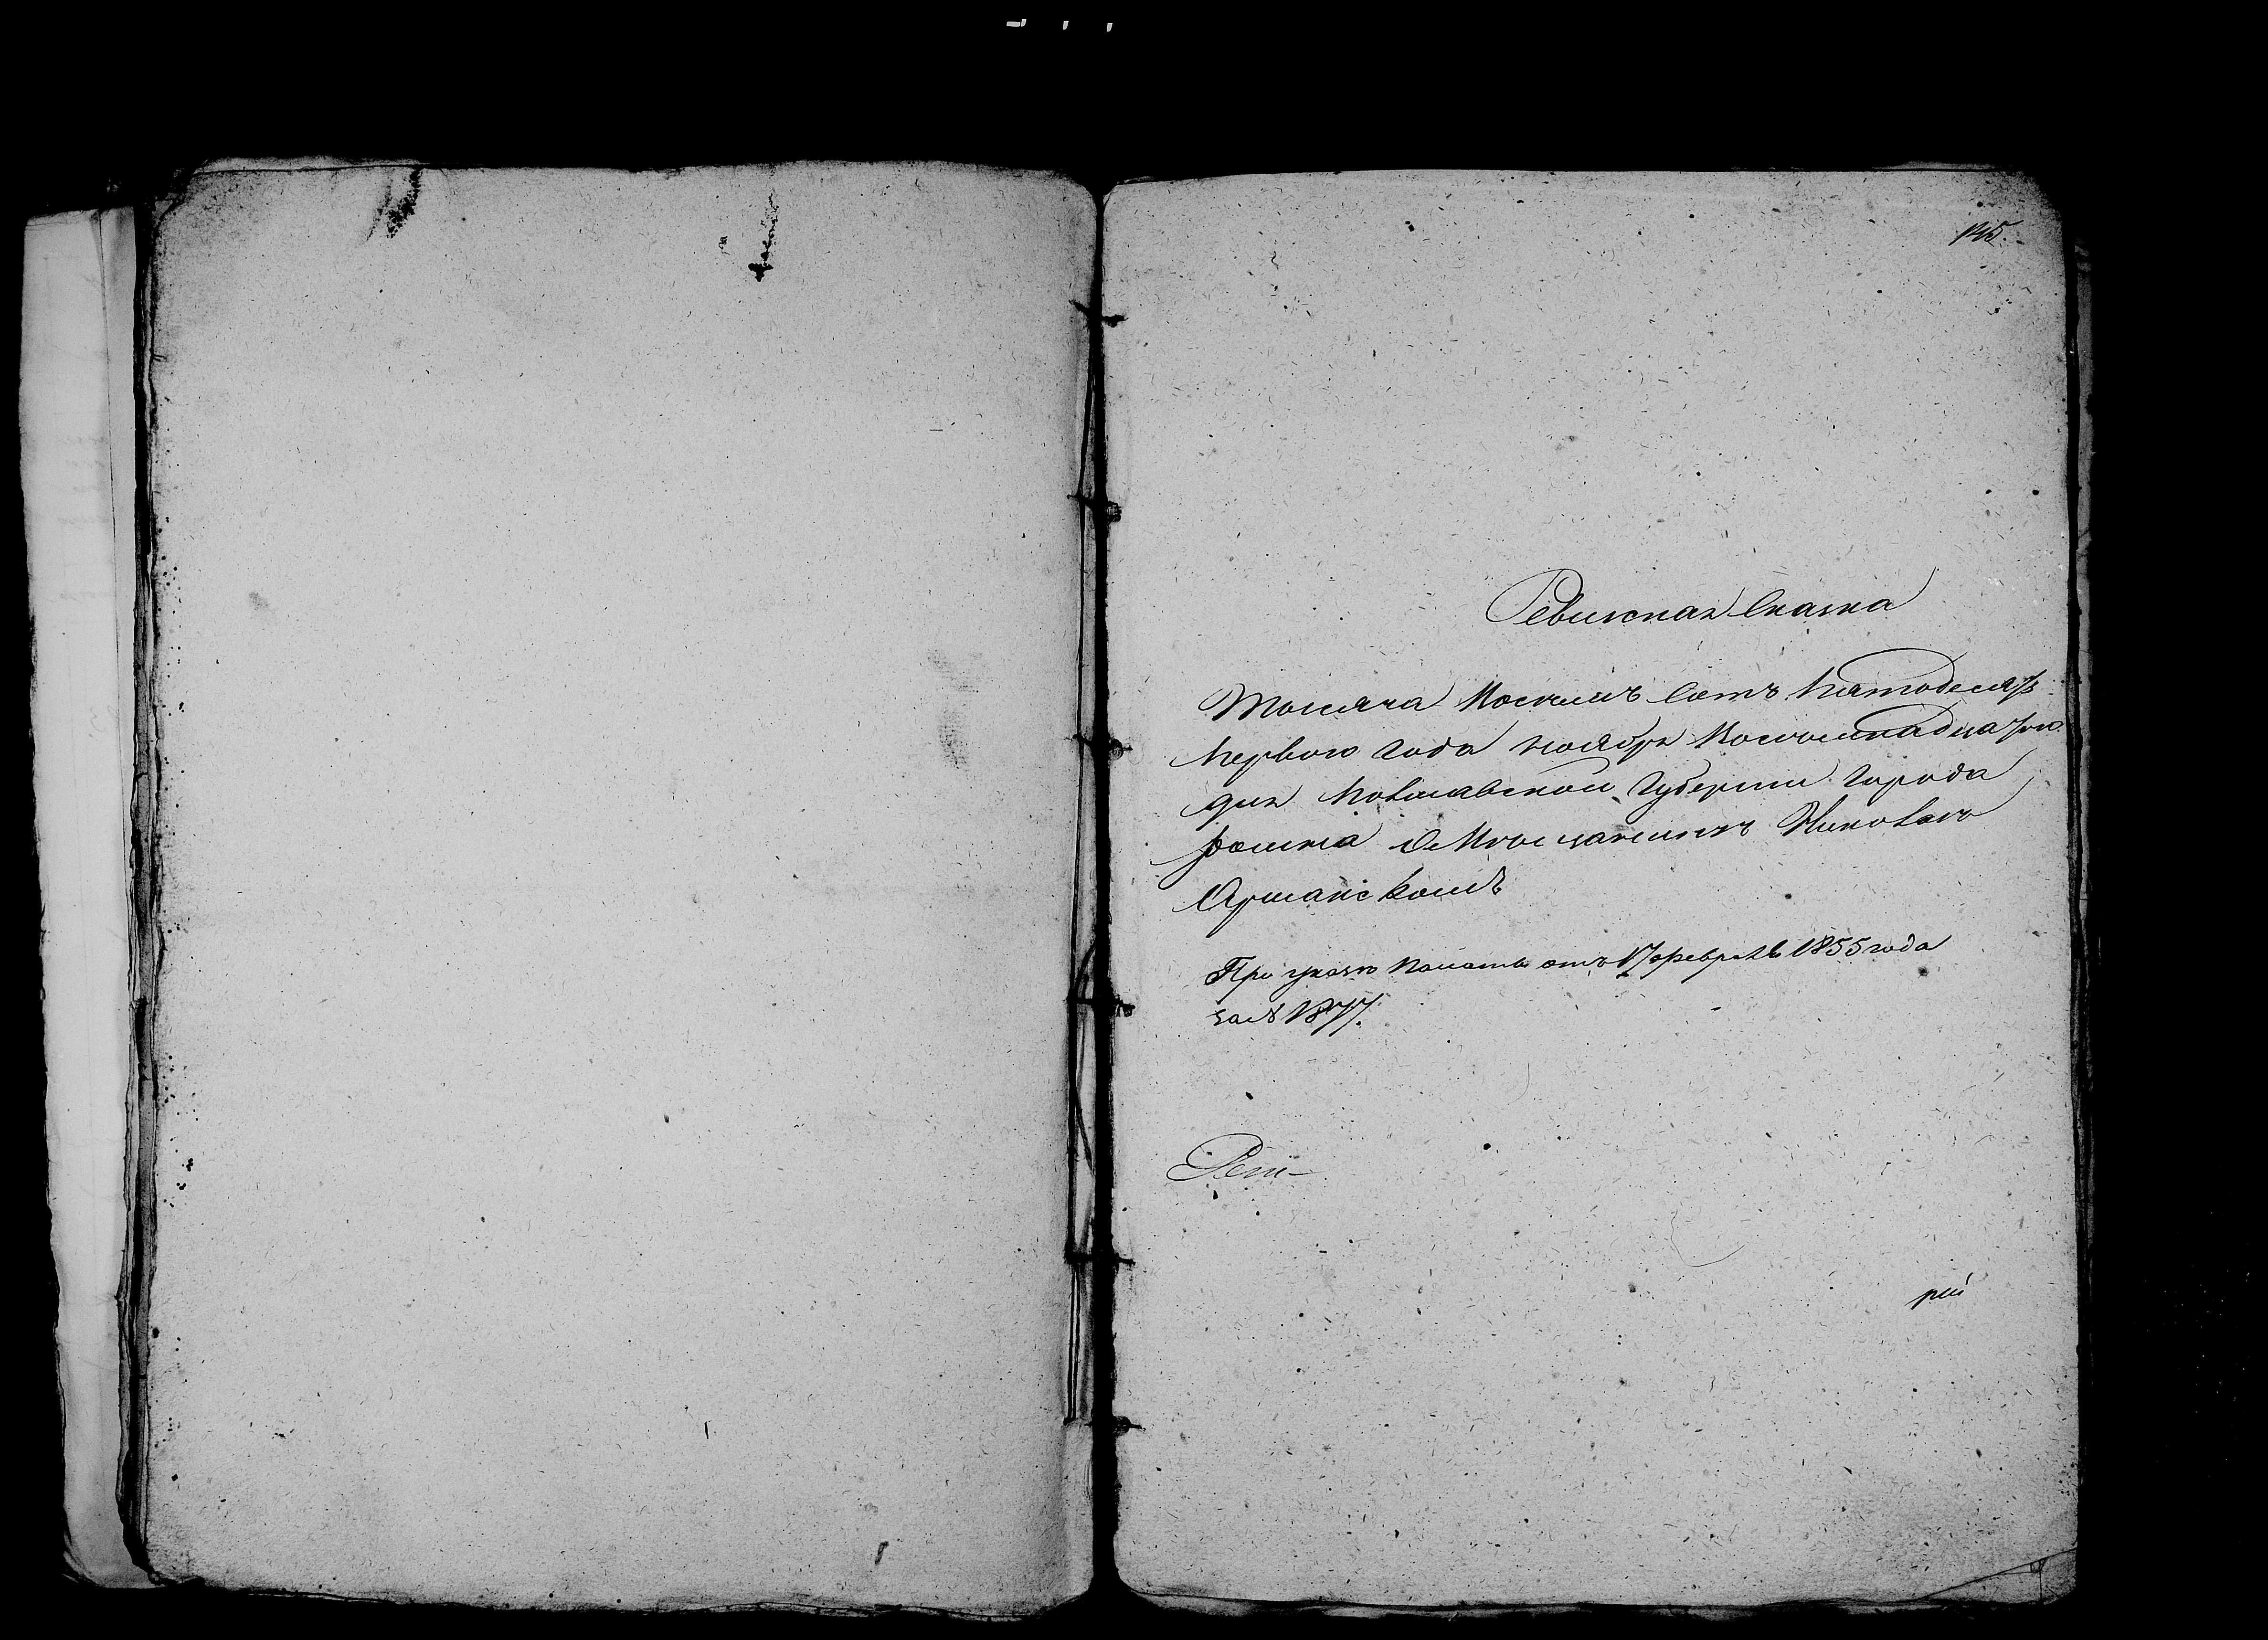 145.
Ревизская Сказка
Тысяча Восемь Сотъ Пятодесятъ
Перваго Года ноября Восемнадцатого
дня Полтавской Губернии Города
Ромна О Мѣщанинѣ Николаѣ
При указѣ Палаты отъ 17 февраля 1855 года
за № 1877.
рий